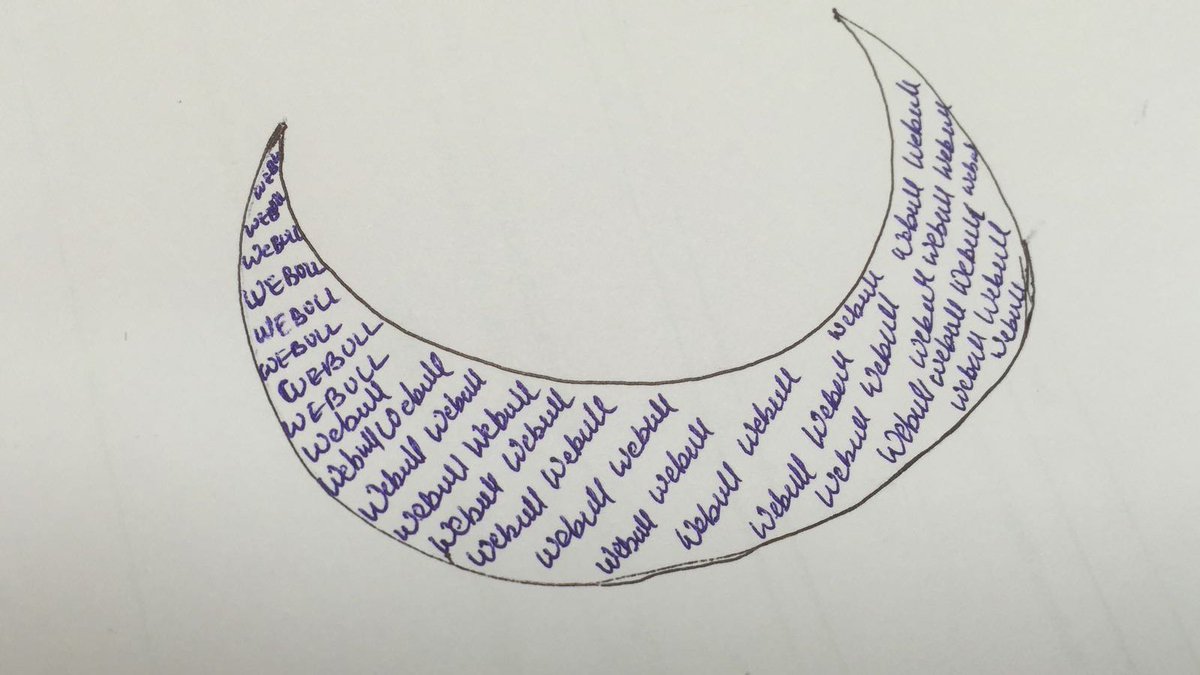 WEBULL
WEBULL
WEBULL
WEBULL
WEBULL
WEBULL
WEBULL
Webull
Webull Webull
Webull Webull
Webull Webull
Webull Webull
Webull Webull
Webull Webull
Webull Webull
Webull Webull
Webull Webull Webull
Webull Webull Webull Webull
Webull Webull Webull Webull
Webull Webull Webull
Webull Webull
Webull